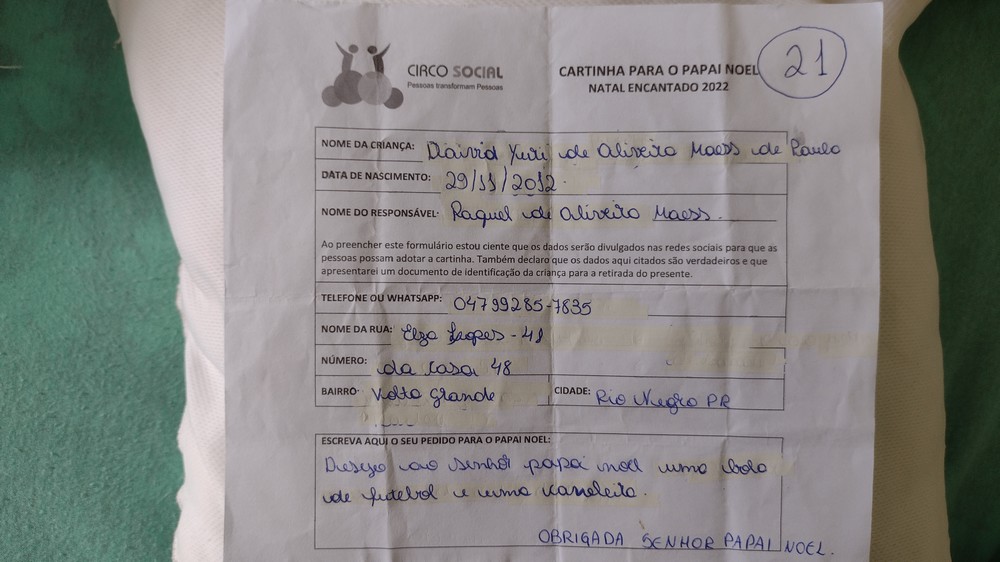 CIRCO SOCIAL
Pessoas transformam Pessoas
CARTINHA PARA O PAPAI NOEL
NATAL ENCANTADO 2022
21
NOME DA CRIANÇA: Daivid Yuri de Oliveira Maess de Paulo
DATA DE NASCIMENTO: 29/11/2012
NOME DO RESPONSÁVEL: Raquel de Oliveira Maess
Ao preencher este formulário estou ciente que os dados serão divulgados nas redes sociais para que as
pessoas possam adotar a cartinha. Também declaro que os dados aqui citados são verdadeiros e que
apresentarei um documento de identificação da criança para a retirada do presente.
TELEFONE OU WHATSAPP: 04799285-7835
NOME DA RUA: Elza Lopes - 48
NÚMERO: da casa 48
BAIRRO: Volta grande CIDADE: Rio Negro PR
ESCREVA AQUI O SEU PEDIDO PARA O PAPAI NOEL:
Desejo ao senhor papai noel uma bola
de futebol e uma
OBRIGADA SENHOR PAPAI NOEL.